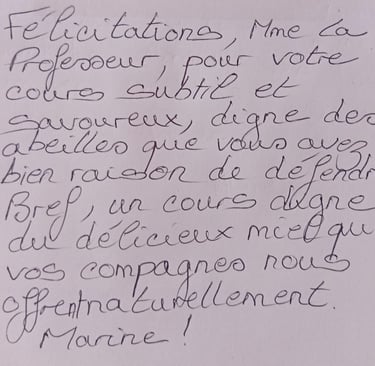 Félicitations, Mme La
Professeur, pour votre
cours subtil et
savoureux, digne des
abeilles que vous avez
bien raison de défendr
Bref, un cours digne
du délicieux miel qu
vos compagnes nous
offrent naturellement.
Marine !